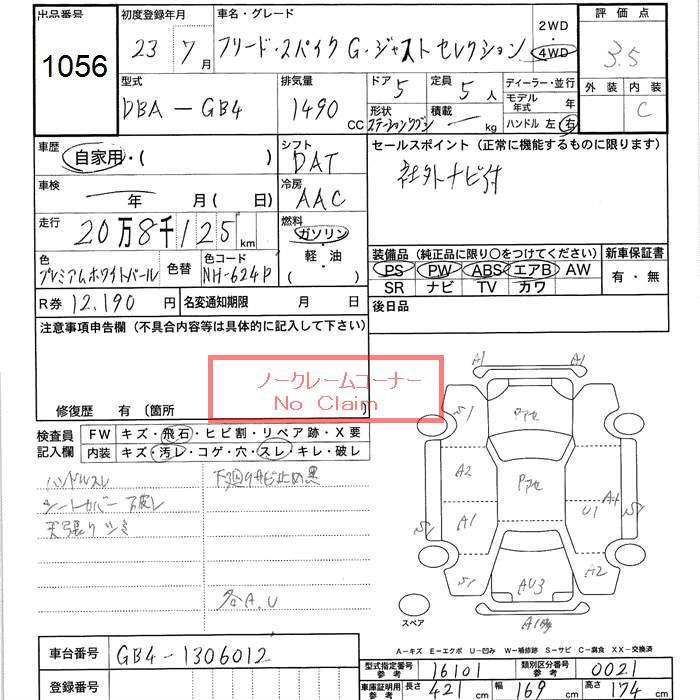 出品番号 初度登録年月 車名・グレード 2WD 評価点
1056 23年7月 フリード・スパイク G・ジャストセレクション 4WD 3.5
型式 排気量 ドア 5 定員 5人 ディーラー・並行 外装 内装
DBA-GB4 1490 CC 形状 ステーションワゴン 積載 ー kg モデル年式 年 C
ハンドル 左 右
車歴 自家用・( ) シフト DAT セールスポイント (正常に機能するものに限ります)
車検 年 月 ( 日) 冷房 AAC 社外ナビ付
走行 20万8千125 km 燃料 ガソリン・軽・油・( )
色 プレミアムホワイトパール 色替 色コード NH-624P 装備品 (純正品に限り○をつけてください) 新車保証書
PS PW ABS エアB AW 有・無
SR ナビ TV カワ
R券 12,190 円 名変通知期限 月 日 後日品
注意事項申告欄 (不具合内容等は具体的に記入して下さい)
ノークレームコーナー
No Claim
修復歴 有 (箇所 )
検査員記入欄 FW キズ・飛石・ヒビ割・リペア跡・X要
内装 キズ・汚レ・コゲ・穴・スレ・キレ・破レ
ハンドルスレ 下廻りサビ止め黒
シートカバー破レ
天張りシミ
各A.U
A1 A1
S1 Pアセ
A2 Pアセ A1
S1 A1 U1 S1
S1 AU3 A2
スペア
A-キズ E-エクボ U-凹み W-補修跡 S-サビ C-腐食 XX-交換済
車台番号 GB4-1306012 型式指定番号 参考 16101 類別区分番号 参考 0021
登録番号 車庫証明用 参考 長さ 421 cm 幅 169 cm 高さ 174 cm